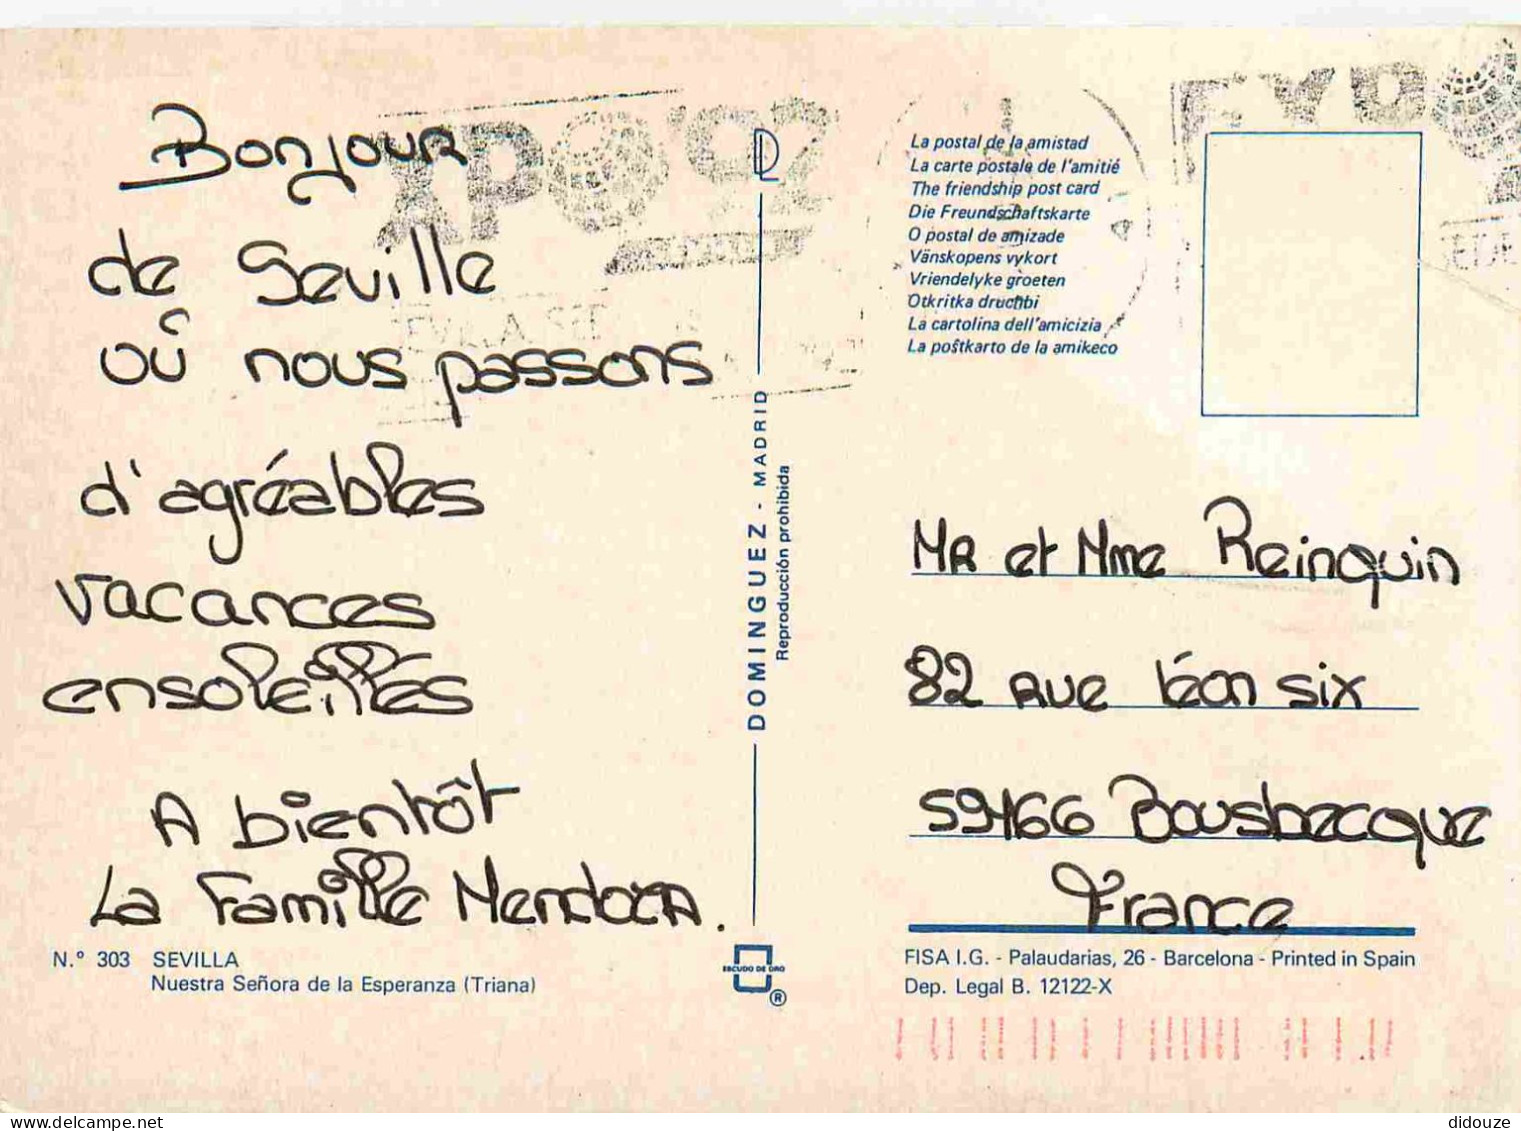 Bonjour
de Seville
où nous passons
d'agréables
vacances
ensoleillés
A bientôt
La Famille Mendoza.
N.º 303 SEVILLA
Nuestra Señora de la Esperanza (Triana)
XPO'92
DOMINGUEZ - MADRID
Reproducción prohibida
ESCUDO DE ORO
®
La postal de la amistad
La carte postale de l'amitié
The friendship post card
Die Freundschaftskarte
O postal de amizade
Vänskopens vykort
Vriendelyke groeten
Otkritka druchbi
La cartolina dell'amicizia
La poŝtkarto de la amikeco
EXPO
MR et Mme Reinquin
82 rue Léon six
59166 Bousbecque
France
FISA I.G. - Palaudarias, 26 - Barcelona - Printed in Spain
Dep. Legal B. 12122-X
didouze